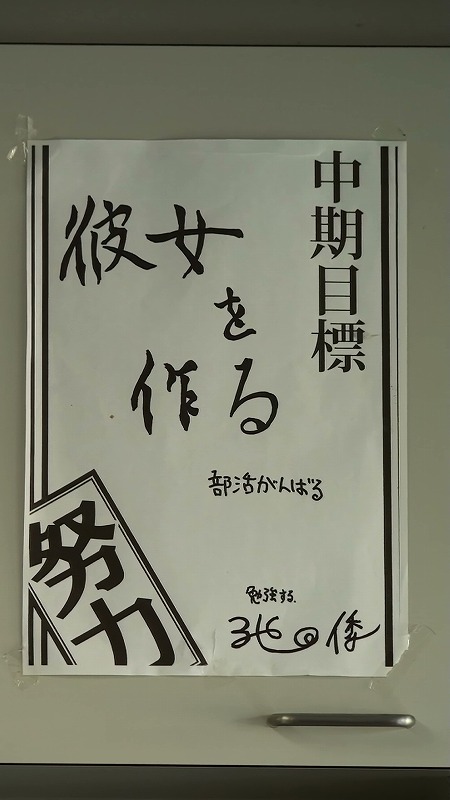 中期目標
彼女
を
作る
部活がんばる
勉強する.
努力